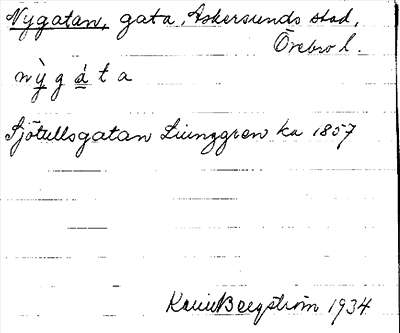 Nygatan, gata, Askersunds stad,
Örebro l.
nỳgáta
Sjötullsgatan Ljunggren ka 1857
Karin Bergström 1934